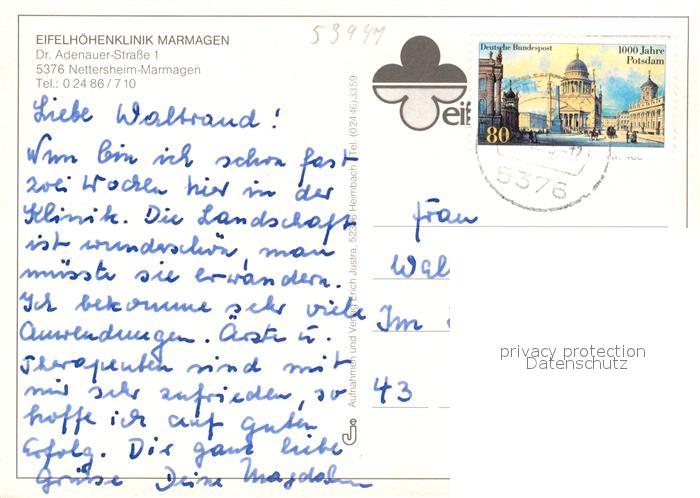 EIFELHÖHENKLINIK MARMAGEN
Dr. Adenauer-Straße 1
5376 Nettersheim-Marmagen
Tel.: 0 24 86 / 7 10
Liebe Waltraud!
Nun bin ich schon fast
zwei Wochen hier in der
Klinik. Die Landschaft
ist wunderschön, man
müsste sie erwandern.
Ich bekomme sehr viele
Anwendungen. Ärzte u.
Therapeuten sind mit
mir sehr zufrieden, so
hoffe ich auf guten
Erfolg. Dir ganz liebe
Grüße Deine
Aufnahmen und Verlag Erich Justra, Heimbach Tel. (02446)3359
eif
Deutsche Bundespost
1000 Jahre
Potsdam
80
5376
Frau
Wal
Im
43
privacy protection
Datenschutz